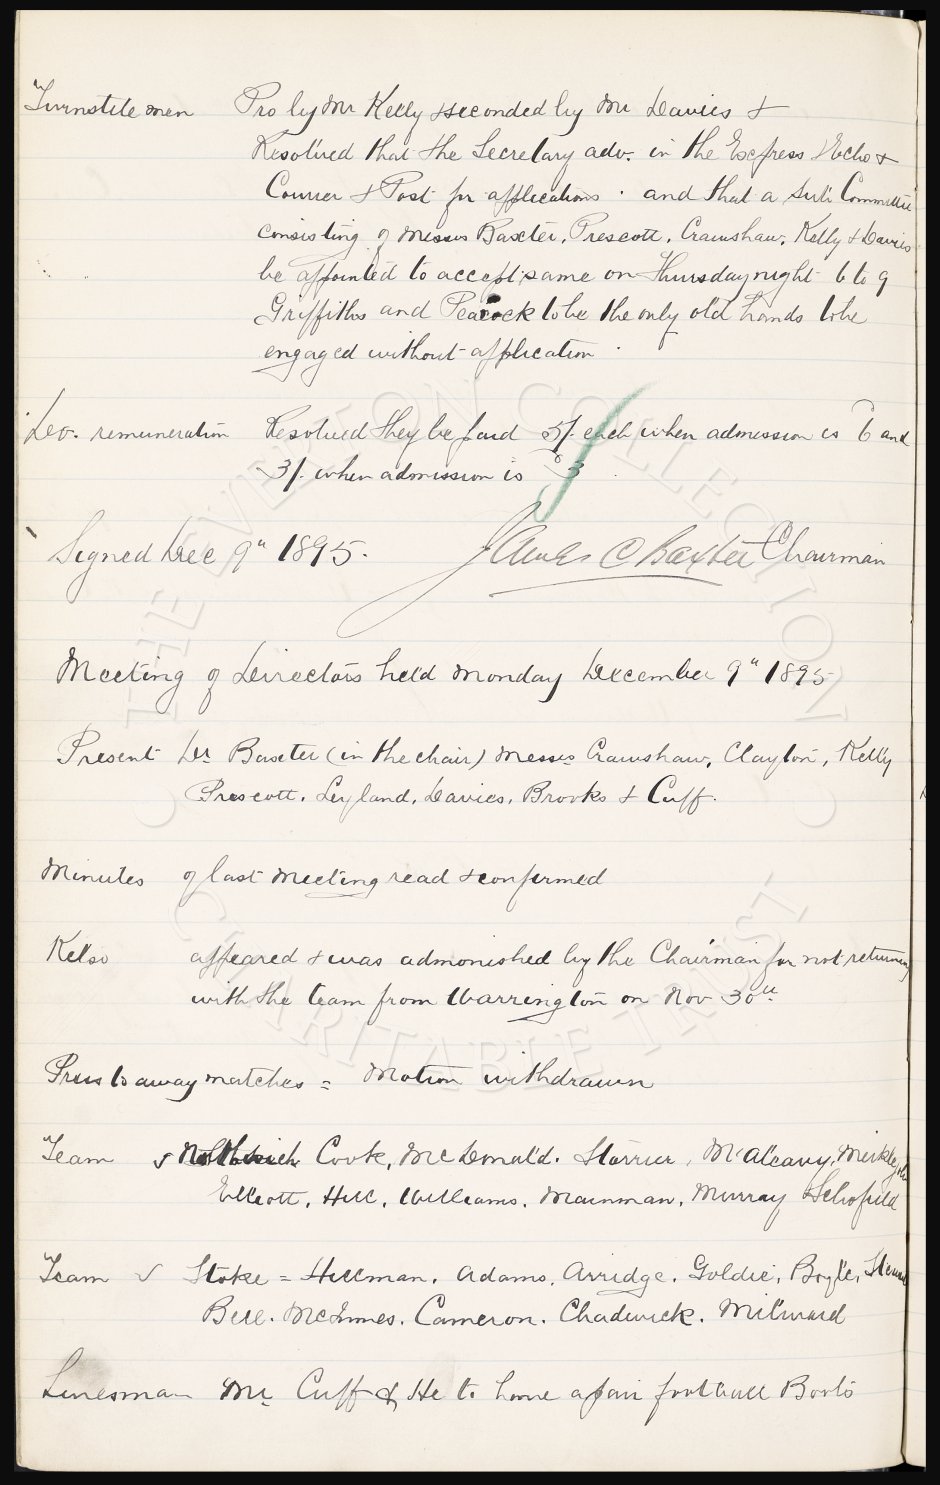 Turnstile men Pro by Mr Kelly & seconded by Mr Davies &
Resolved that the Secretary adv. in the Express & Echo &
Courier & Post for applications . and that a Sub Committee
consisting of Messrs Baxter, Prescott, Cranshaw, Kelly & Davies
be appointed to accept same on Thursday night 6 to 9
Griffiths and Peacock to be the only old hands to be
engaged without application .
Do. remuneration Resolved they be paid 5/- each when admission is 6 and
3/- when admission is 3
Signed Dec 9th 1895. James C Baxter Chairman
Meeting of Directors held Monday December 9th 1895
Present Dr Baxter (in the chair) Messrs Cranshaw, Clayton, Kelly
Prescott, Leyland, Davies, Brooks & Cuff.
Minutes of last Meeting read & confirmed
Kelso appeared & was admonished by the Chairman for not returning
with the team from Warrington on Nov 30th
Press to away matches = Motion withdrawn
Team v Cook, McDonald, Storrier, McAleavy, Meiklejohn
Elliott, Hill, Williams, Mainman, Murray & Schofield
Team v Stoke = Hillman, Adams, Arridge, Goldie, Boyle, Stewart
Bell, McInnes, Cameron, Chadwick, Milward
Linesman Mr Cuff & He to have a pair football Boots
THE EVERTON COLLECTION
CHARITABLE TRUST